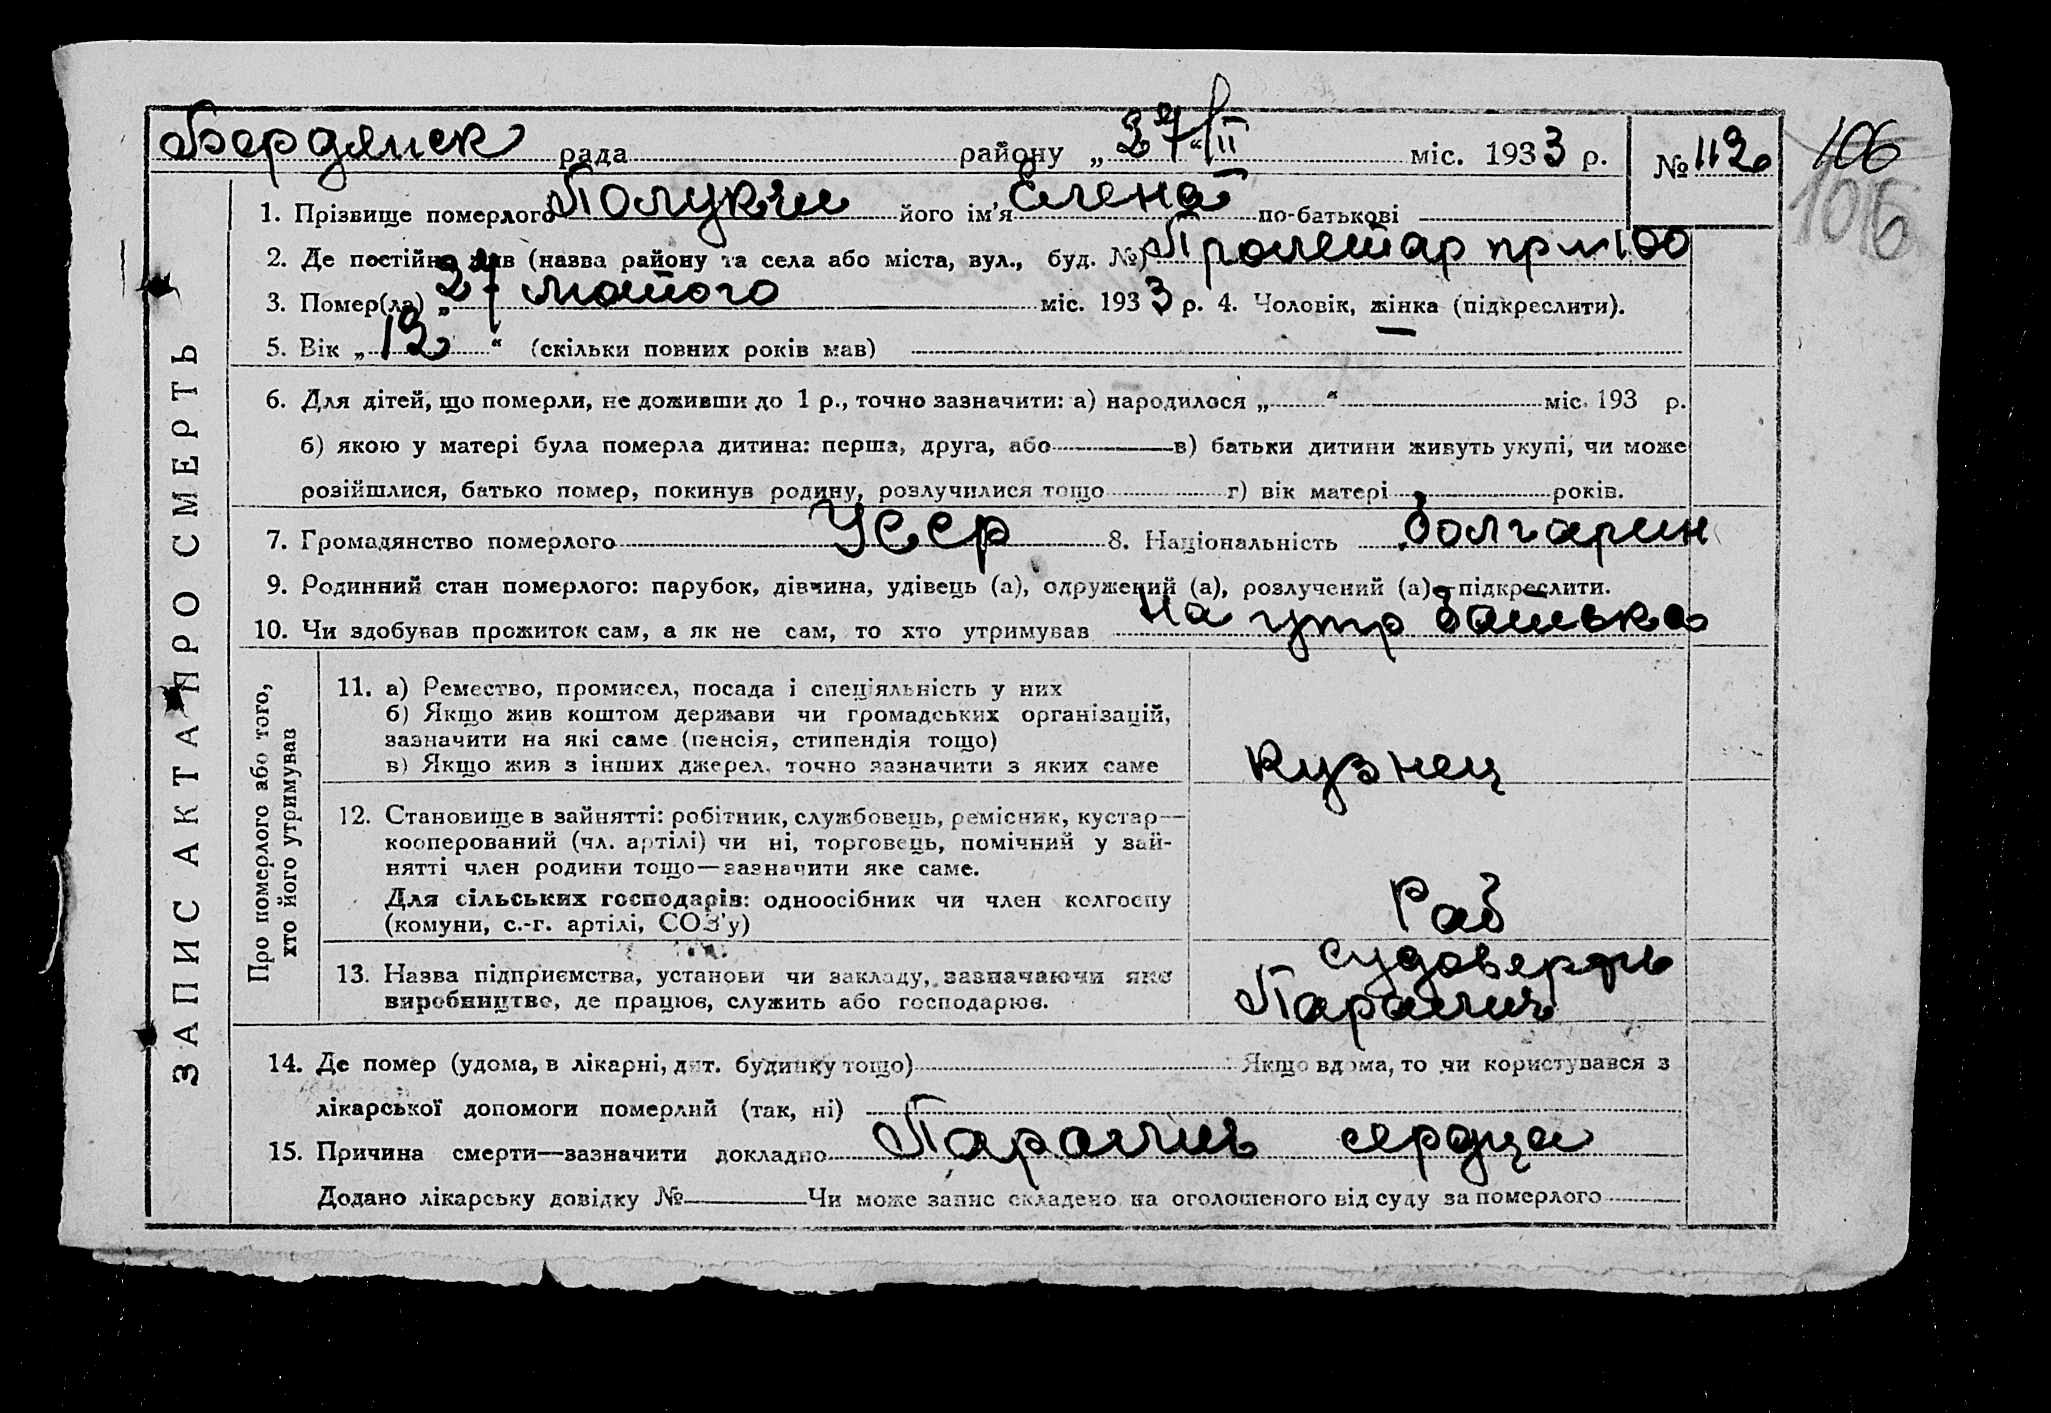 Бердянск рада району „27“/II міс. 1933 р. № 112 106
106
1. Прізвище померлого Полукчи його ім'я Елена по-батькові
2. Де постійно жив (назва району та села або міста, вул., буд. №) Пролетар пр № 100
3. Помер(ла) „27 лютого міс. 1933 р. 4. Чоловік, жінка (підкреслити).
5. Вік „12“ (скільки повних років мав)
6. Для дітей, що померли, не доживши до 1 р., точно зазначити: а) народилося „ “ міс. 193 р.
б) якою у матері була померла дитина: перша, друга, або в) батьки дитини живуть укупі, чи може
розійшлися, батько помер, покинув родину, розлучилися тощо г) вік матері років.
7. Громадянство померлого Усср 8. Національність болгарин
9. Родинний стан померлого: парубок, дівчина, удівець (а), одружений (а), розлучений (а)—підкреслити.
10. Чи здобував прожиток сам, а як не сам, то хто утримував на утр батька
ЗАПИС АКТА ПРО СМЕРТЬ
Про померлого або того,
хто його утримував
11. а) Ремество, промисел, посада і спеціяльність у них
б) Якщо жив коштом держави чи громадських організацій,
зазначити на які саме (пенсія, стипендія тощо)
в) Якщо жив з інших джерел, точно зазначити з яких саме
Кузнец
12. Становище в зайнятті: робітник, службовець, ремісник, кустар—
кооперований (чл. артілі) чи ні, торговець, помічний у зай-
нятті член родини тощо—зазначити яке саме.
Для сільських господарів: одноосібник чи член колгоспу
(комуни, с.-г. артілі, СОЗ'у)
Раб
13. Назва підприємства, установи чи закладу, зазначаючи яке
виробництво, де працює, служить або господарює.
судоверфь
Паралич
14. Де помер (удома, в лікарні, дит. будинку тощо) Якщо вдома, то чи користувався з
лікарської допомоги померлий (так, ні)
15. Причина смерти—зазначити докладно Паралич сердца
Додано лікарську довідку № Чи може запис складено на оголошеного від суду за померлого